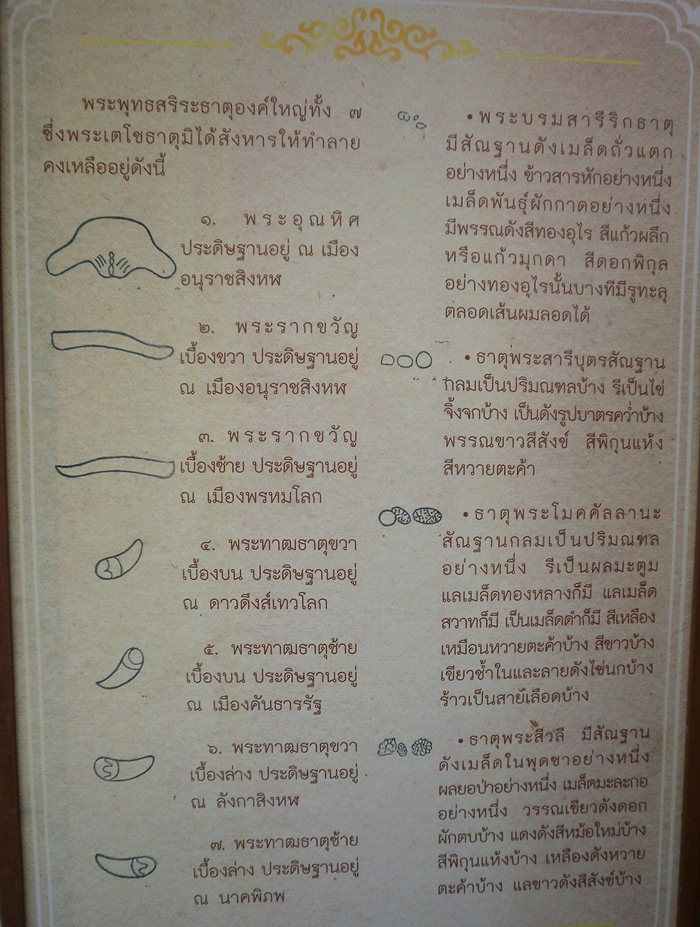 พระพุทธสริระธาตุองค์ใหญ่ทั้ง ๗
ซึ่งพระเตโชธาตุมิได้สังหารให้ทำลาย
คงเหลืออยู่ดังนี้
๑. พระอุณหิศ
ประดิษฐานอยู่ ณ เมือง
อนุราชสิงหฬ
๒. พระรากขวัญ
เบื้องขวา ประดิษฐานอยู่
ณ เมืองอนุราชสิงหฬ
๓. พระรากขวัญ
เบื้องซ้าย ประดิษฐานอยู่
ณ เมืองพรหมโลก
๔. พระทาฒธาตุขวา
เบื้องบน ประดิษฐานอยู่
ณ ดาวดึงส์เทวโลก
๕. พระทาฒธาตุซ้าย
เบื้องบน ประดิษฐานอยู่
ณ เมืองคันธารรัฐ
๖. พระทาฒธาตุขวา
เบื้องล่าง ประดิษฐานอยู่
ณ ลังกาสิงหฬ
๗. พระทาฒธาตุซ้าย
เบื้องล่าง ประดิษฐานอยู่
ณ นาคพิภพ
• พระบรมสารีริกธาตุ
มีสัณฐานดังเมล็ดถั่วแตก
อย่างหนึ่ง ข้าวสารหักอย่างหนึ่ง
เมล็ดพันธุ์ผักกาดอย่างหนึ่ง
มีพรรณดังสีทองอุไร สีแก้วผลึก
หรือแก้วมุกดา สีดอกพิกุล
อย่างทองอุไรนั้นบางทีมีรูทะลุ
ตลอดเส้นผมลอดได้
• ธาตุพระสารีบุตรสัณฐาน
กลมเป็นปริมณฑลบ้าง รีเป็นไข่
จิ้งจกบ้าง เป็นดังรูปบาตรคว่ำบ้าง
พรรณขาวสีสังข์ สีพิกุนแห้ง
สีหวายตะค้า
• ธาตุพระโมคคัลลานะ
สัณฐานกลมเป็นปริมณฑล
อย่างหนึ่ง รีเป็นผลมะตูม
แลเมล็ดทองหลางก็มี แลเมล็ด
สวาทก็มี เป็นเมล็ดดำก็มี สีเหลือง
เหมือนหวายตะค้าบ้าง สีขาวบ้าง
เขียวช้ำในและลายดังไข่นกบ้าง
ร้าวเป็นสายเลือดบ้าง
• ธาตุพระสีวลี มีสัณฐาน
ดังเมล็ดในพุดซาอย่างหนึ่ง
ผลยอป่าอย่างหนึ่ง เมล็ดมะละกอ
อย่างหนึ่ง วรรณเขียวดังดอก
ผักตบบ้าง แดงดังสีหม้อใหม่บ้าง
สีพิกุนแห้งบ้าง เหลืองดังหวาย
ตะค้าบ้าง แลขาวดังสีสังข์บ้าง